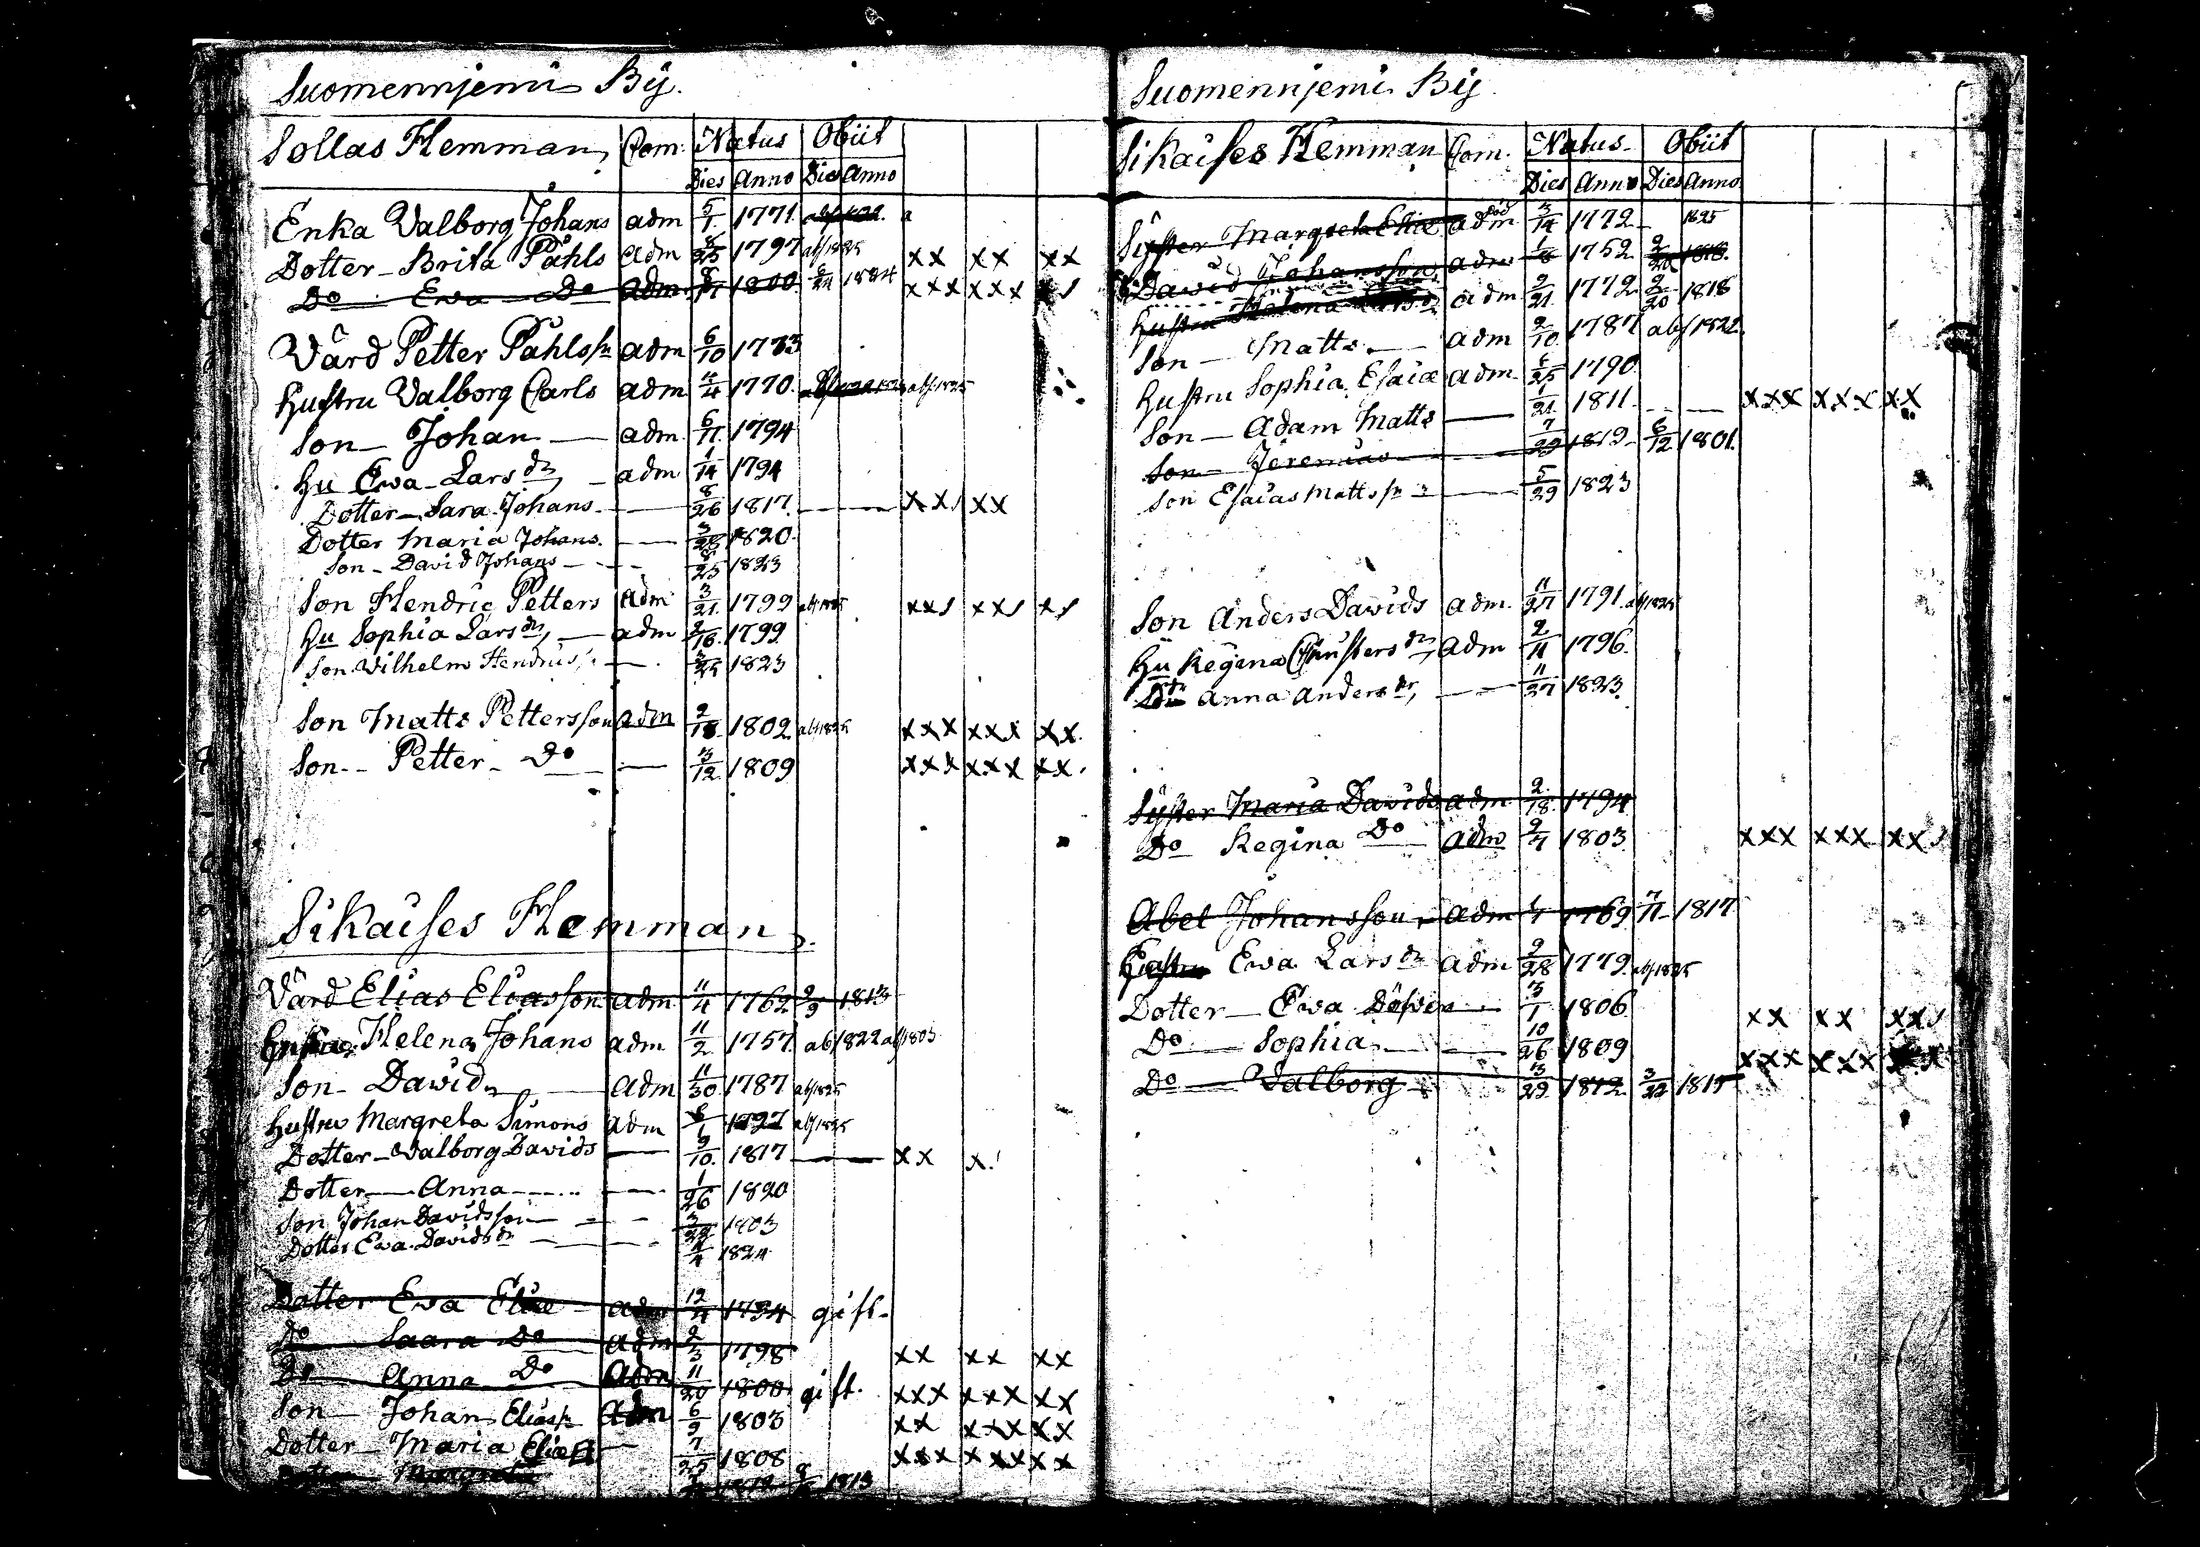 Suomennjemi By.
Sollas Hemman, Com. Natus Obiit
Dies Anno Dies Anno
Enka Valborg Johans adm 5/1. 1771.
Dotter - Brita Påhls adm 1797 abs 1825 xx xx xx
Do Ewa Do adm 1800 1824 xxx xxx
Värd Petter Påhls sn adm 6/10 1773
Hustru Valborg Carls adm 1770. abs 1825
Son - Johan - adm. 6/11. 1794
Hu Ewa - Lars dr - adm 1/14 1794
Dotter - Sara Johans - 8/26 1817. xxx xx
Dotter Maria Johans. 1820.
Son - David Johans - 8/25 1823
Son Hendric Petters adm 3/21. 1799 abs 1825
Hu Sophia Lars dr, - adm 2/16. 1799
Son Wilhelm 1823
Son Matts Pettersson adm 1802 abs 1825 xxx xxx xx.
Son - Petter - Do 3/12 1809 xxx xxx xx.
Sikaises Hemman
Värd Elias Eliasson adm 11/4 1762 2/9 1813
Hustru Helena Johans adm 11/2 1757. abs 1822 abs 1803
Son - David adm 11/30 1787 abs 1825
Hustru Margreta Simons adm 1797 abs 1825
Dotter - Walborg Davids 9/10. 1817 xx x.
Dotter - Anna 1/26 1820
Son Johan Davidsson
Dotter Ewa Davids dr 1824
Dotter Ewa Eliæ adm 12/4 1794 gift.
Do Saara Do adm 2/3 1798 xx xx xx
Do Anna Do adm 11/20 1800 gift. xxx xxx xx
Son - Johan Elias sn adm 6/9 1803 xx xxx xx
Dotter - Maria Eliæ 7/25 1808 xxx xxx xx
Dotter Margreta 1813
Suomennjemi By.
Sikaises Hemman Com. Natus. Obiit
Dies Anno Dies Anno
Syster Margreta Eliæ adm 3/14 1772 1825
David Johansson adm 1752. 1818.
Hustru Helena adm 2/21. 1772 2/20 1818
Son - Matts - adm 2/10. 1787 abs 1822.
Hustru Sophia Esaiæ adm. 1790.
Son - Adam Matts 1/21. 1811. xxx xxx xx
Son - Jeremias 7/29 1819. 6/12 1801.
Son Esaias Matts sn 5/29 1823
Son Anders Davids adm. 11/27 1791. abs 1825
Hu Regina Christers dr, adm 2/11 1796.
Anna Anders dr, 11/27 1823.
Syster Maria Davids adm. 2/18. 1794
Do Regina Do adm 2/7 1803 xxx xxx xx
Abel Johansson adm 1769. 7/11 1817
Hustru Ewa Lars dr adm 9/28 1779. abs 1825
Dotter - Ewa 3/1 1806 xx xx xx
Do - Sophia 10/26 1809 xxx xxx
Do - Valborg 3/29. 1812